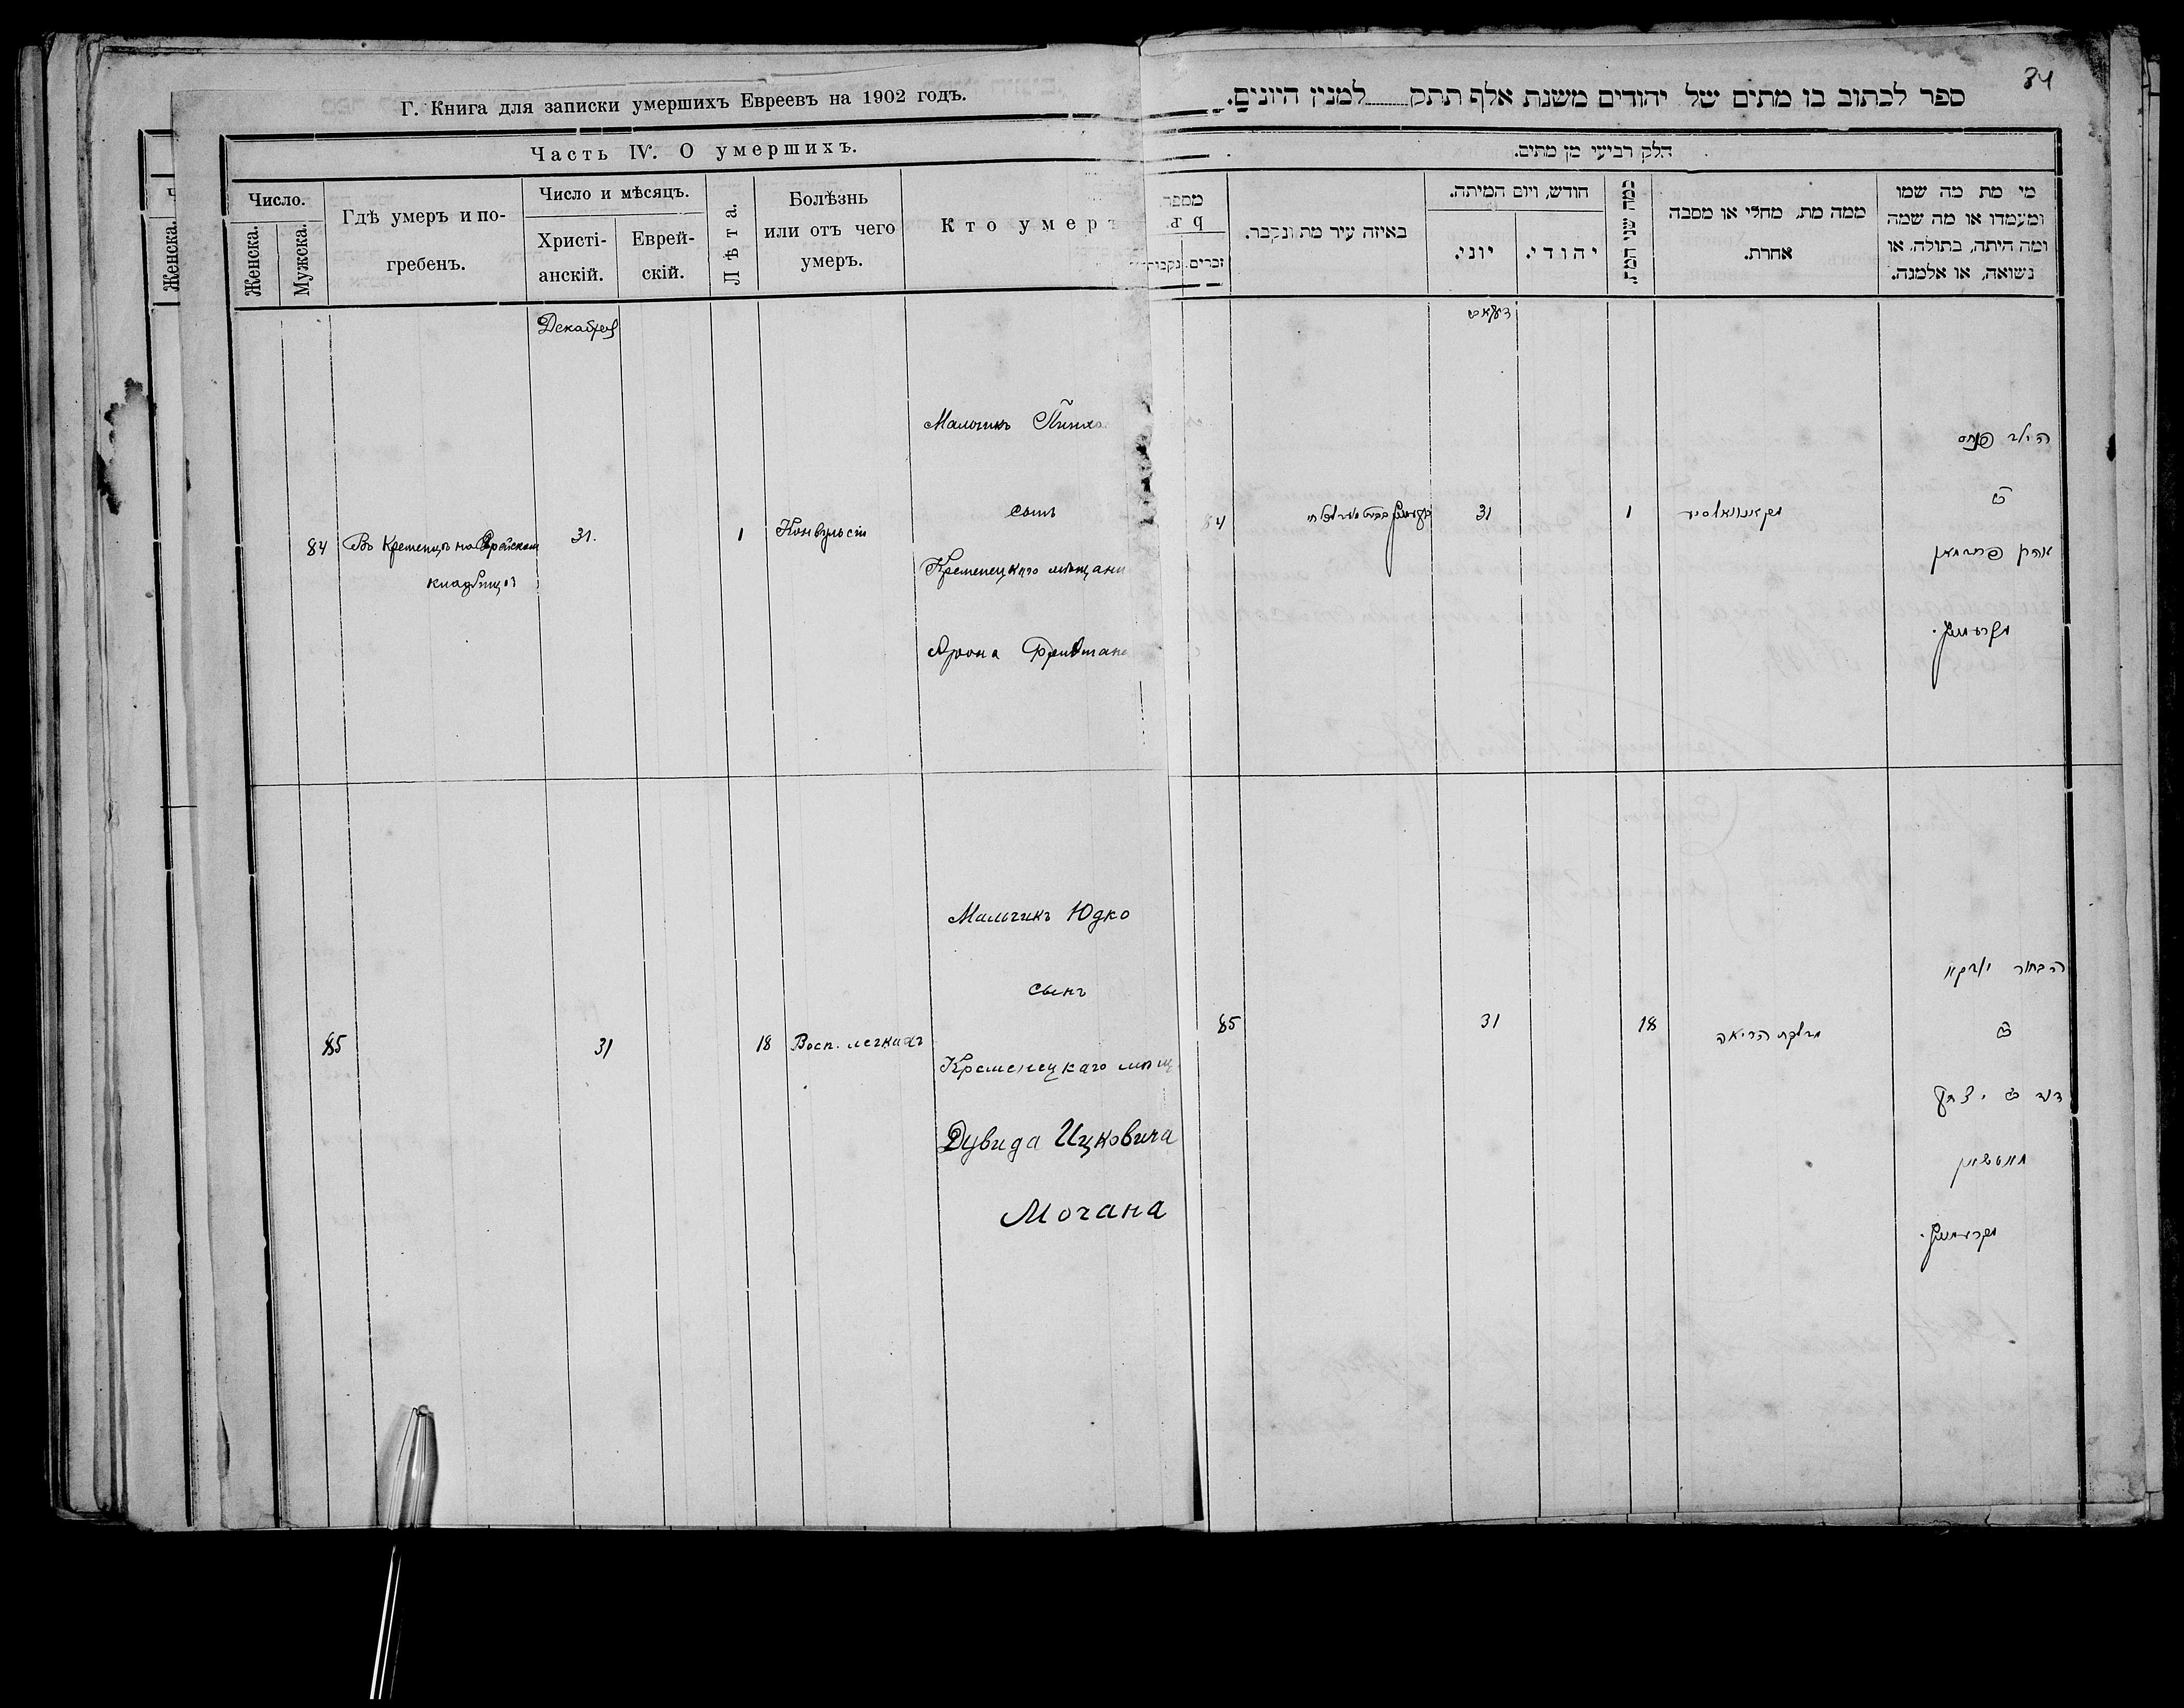 Г. Книга для записки умершихъ Евреевъ на 1902 годъ.
Часть IV. О умершихъ.
Число.
Женска.
Мужска.
Гдѣ умеръ и по-
гребенъ.
Число и мѣсяцъ.
Христі-
анскій.
Еврей-
скій.
Лѣта.
Болѣзнь
или отъ чего
умеръ.
Кто умеръ
Декабрь
84
Въ Кременцѣ на Еврейскомъ
кладбищѣ
31.
1
Конвульсіи
Мальчикъ Пинхо
сынъ
Кременецкаго мѣщани
Арона
85
31
18
Восп. легкихъ
Мальчикъ Юдко
сынъ
Кременецкаго мѣщ
Дувида Ицковича
Мочана
34
ספר לכתוב בו מתים של יהודים משנת אלף תתק למנין היונים.
חלק רביעי מן מתים.
מספר
זכרים.
נקבות
באיזה עיר מת ונקבר.
חודש, ויום המיתה.
יוני.
יהודי.
כמה שני המת.
ממה מת, מחלי או מסבה
אחרת.
מי מת מה שמו
ומעמדו או מה שמה
ומה היתה, בתולה, או
נשואה, או אלמנה.
84
31
1
הילד פנחס
ב
אהרן
85
31
18
דלקת הריאה
הבחור יודקא
ב
דוד ב יצחק
מאטשאן